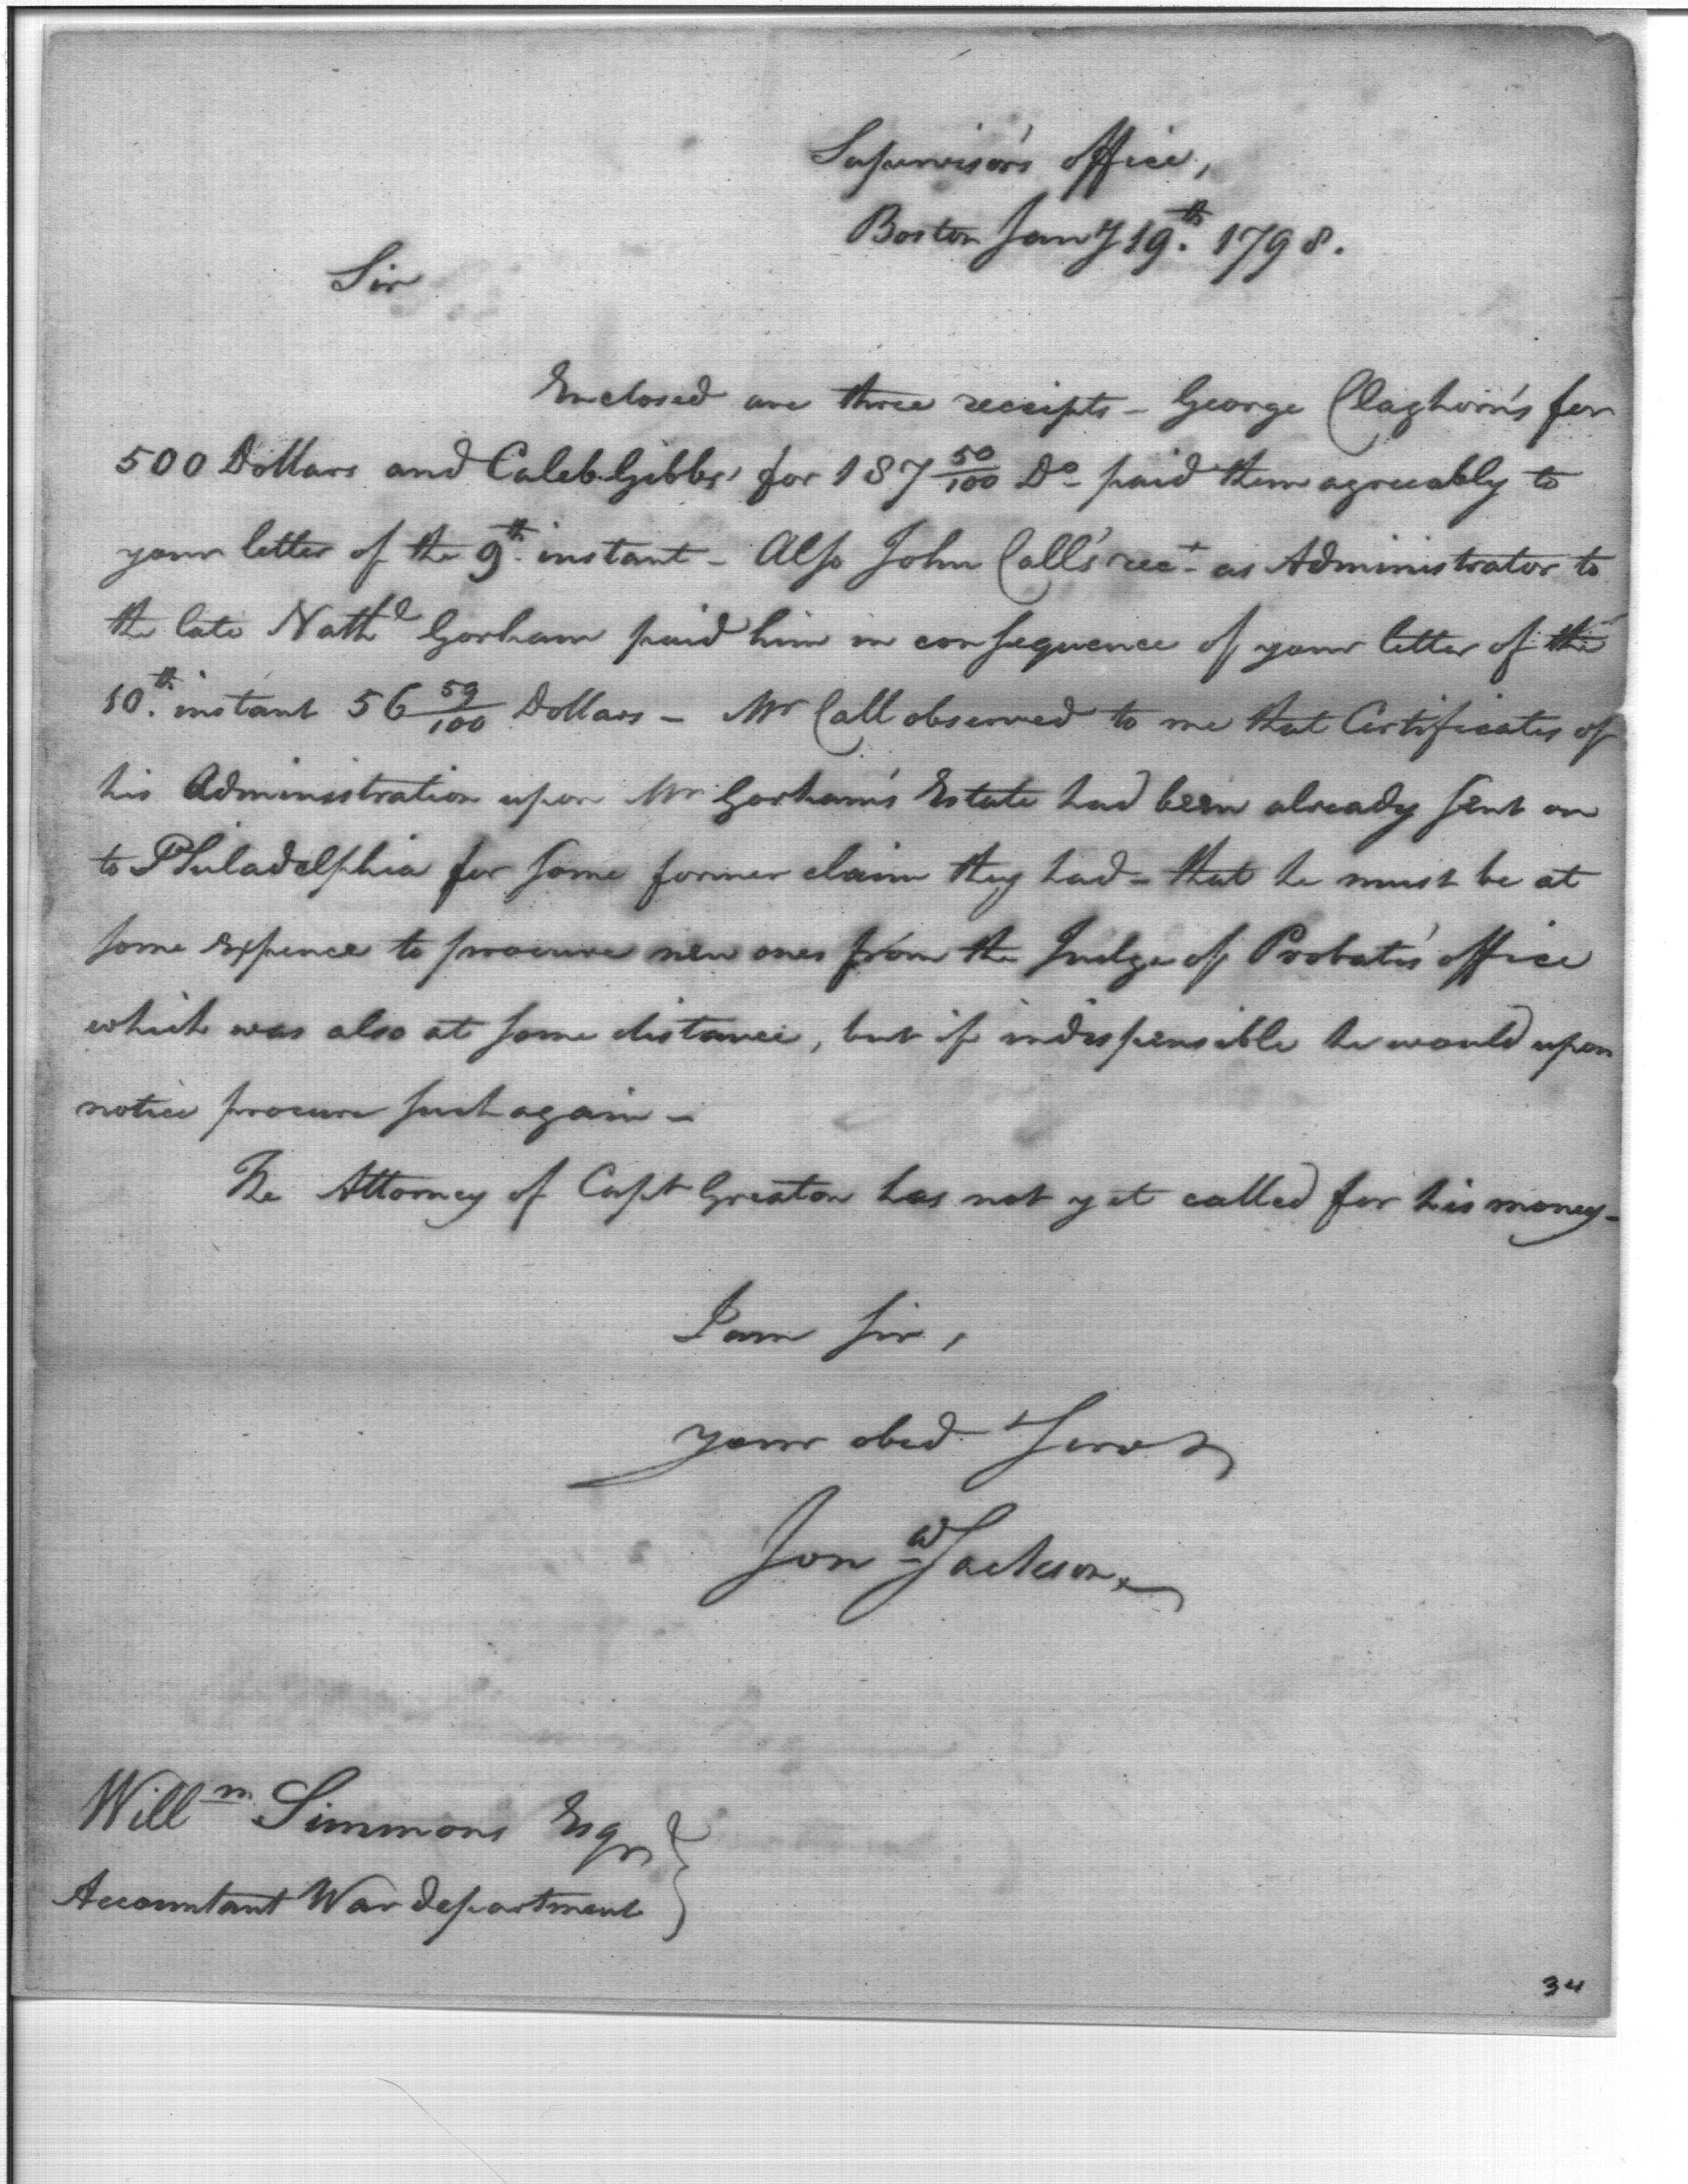 Supervisor's office,
Boston Jany 19th. 1798.
Sir
Enclosed are three receipts - George Claghorn's for
500 Dollars and Caleb Gibbs' for 187 50/100 Do paid them agreeably to
your letter of the 9th. instant - Also John Call's rect as Administrator to
the late Nathl Gorham paid him in consequence of your letter of the
10th. instant 56 59/100 Dollars - Mr Call observed to me that Certificates of
his Administration upon Mr Gorham's Estate had been already sent on
to Philadelphia for some former claim they had - that he must be at
some expence to procure new ones from the Judge of Probate's office
which was also at some distance, but if indispensible he would upon
notice procure such again -
The Attorney of Capt Greaton has not yet called for his money -
I am sir,
your obed Servt
Jona Jackson
Willm Simmons Esqr }
Accountant War department
34